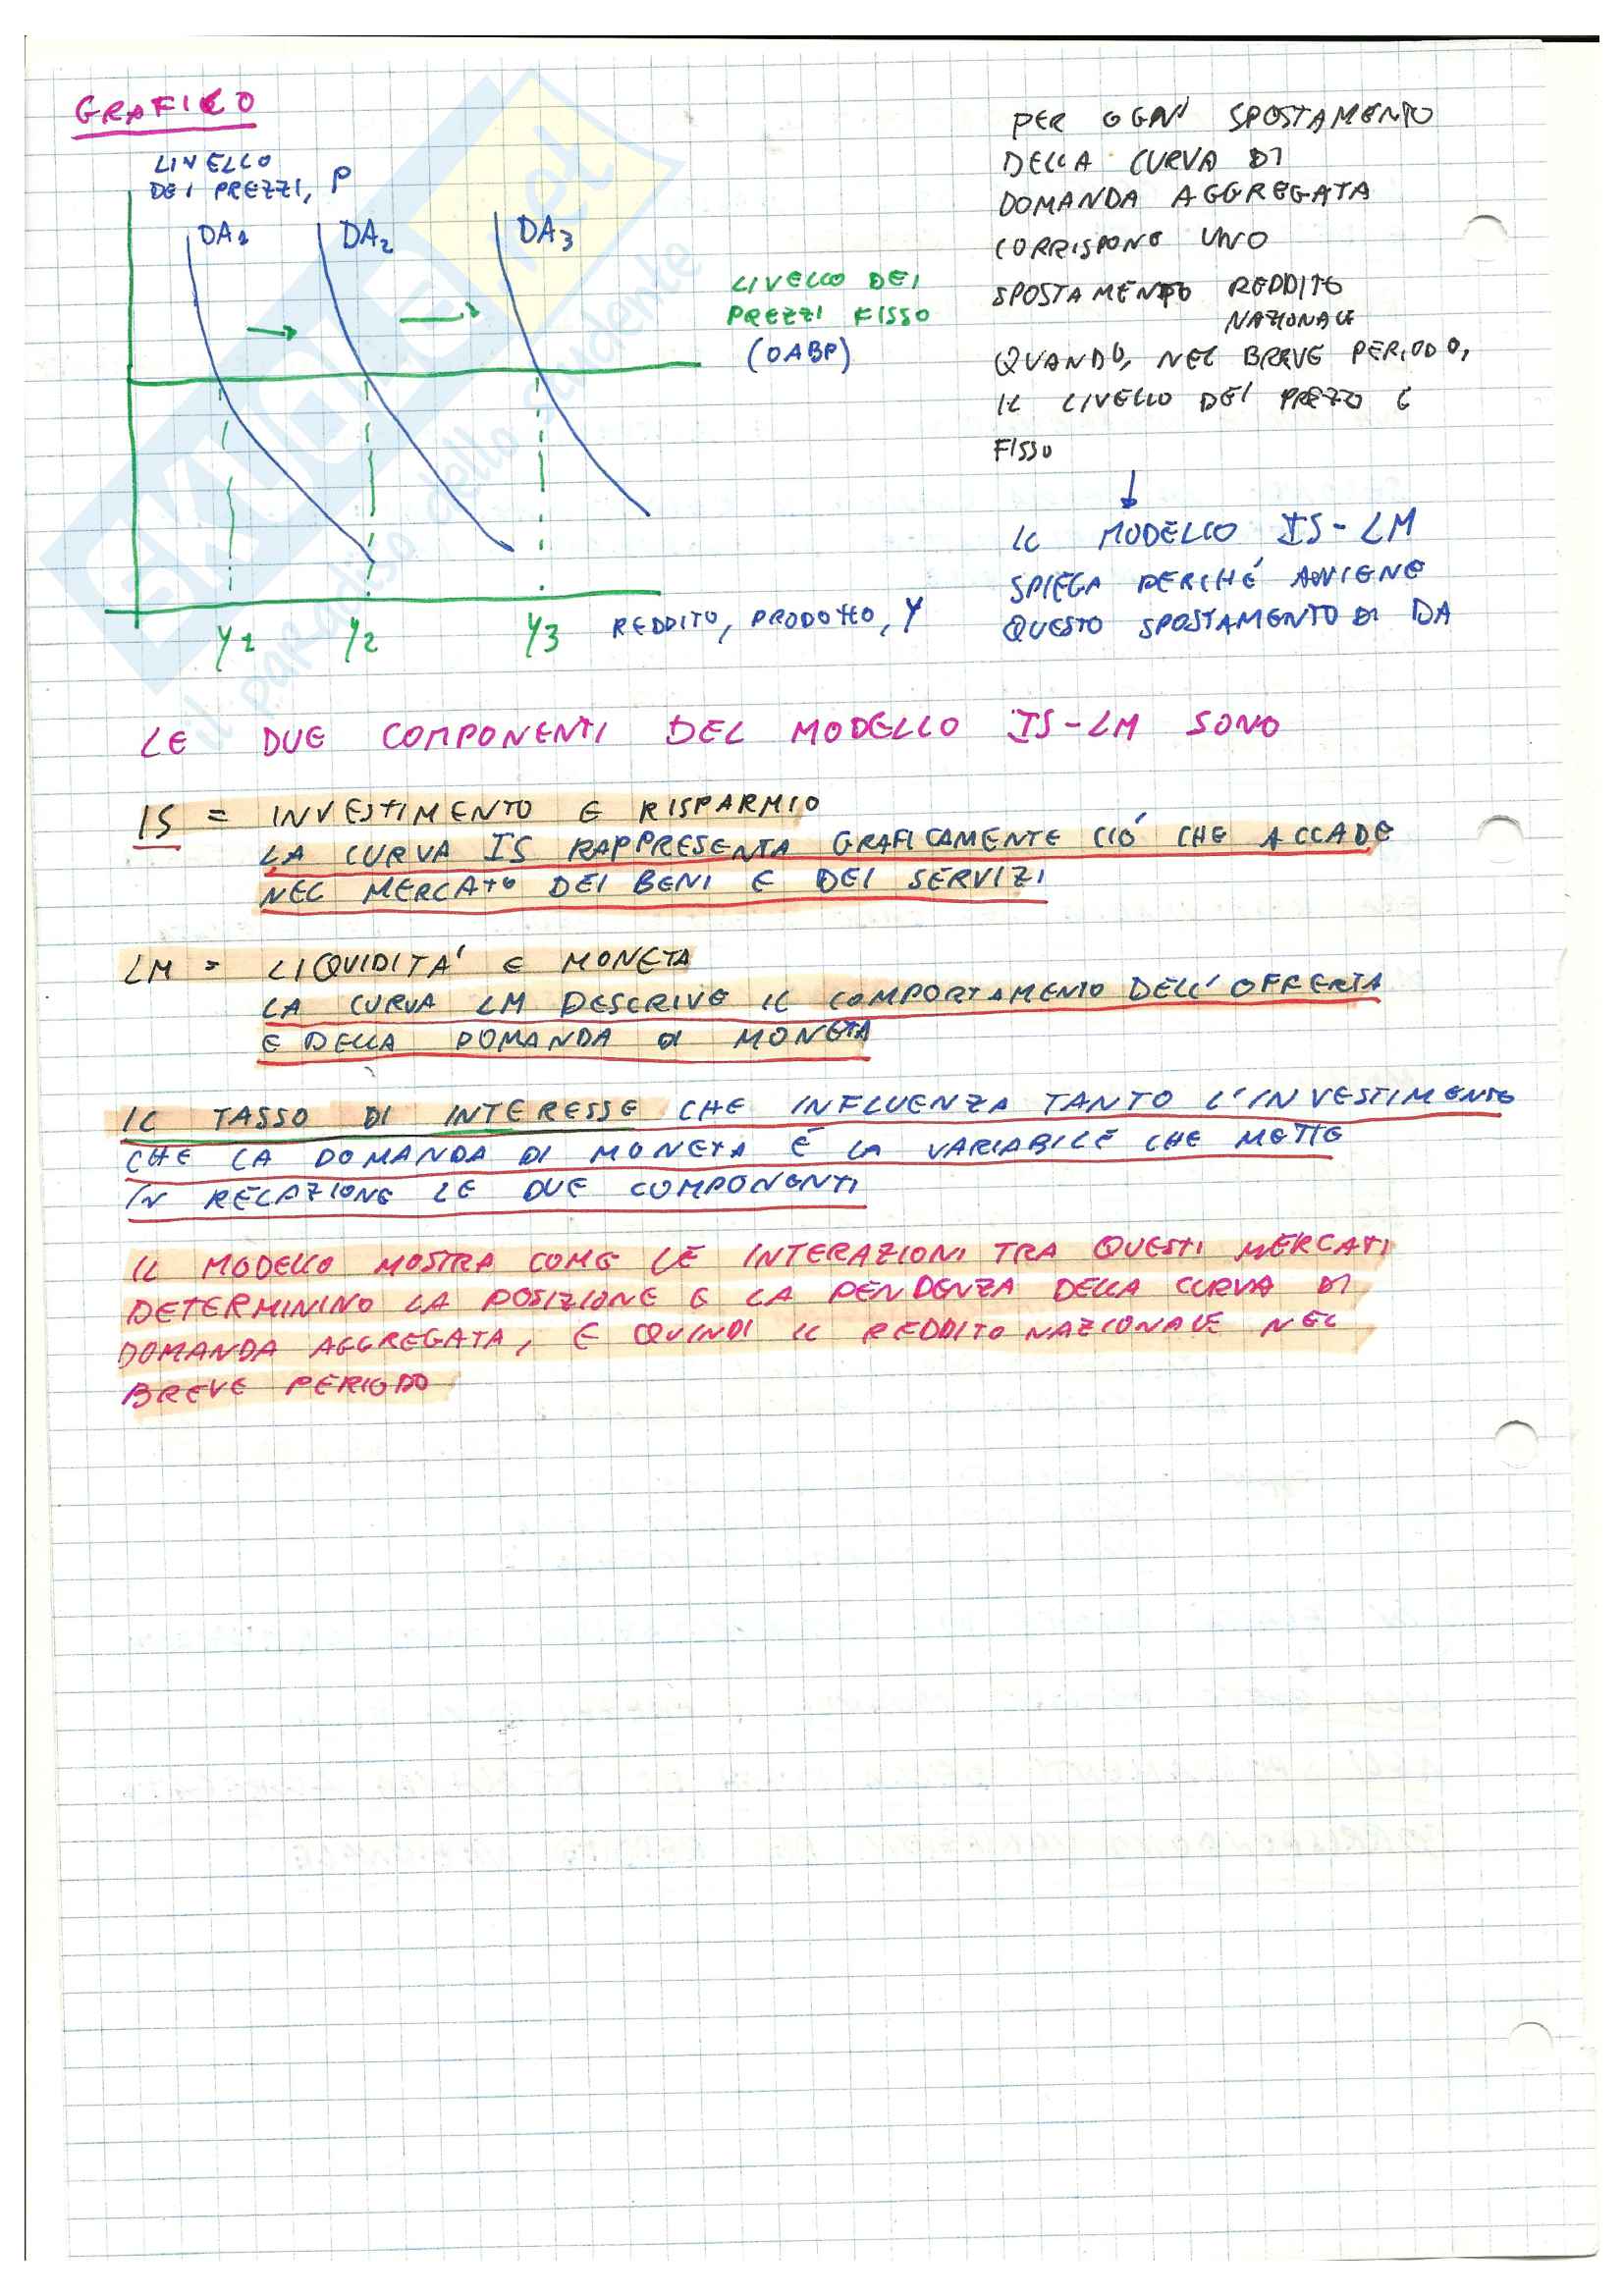 GRAFICO
LIVELLO
DEI PREZZI, P
DA1
DA2
DA3
LIVELLO DEI
PREZZI FISSO
(OABP)
Y1
Y2
Y3
REDDITO, PRODOTTO, Y
PER OGNI SPOSTAMENTO
DELLA CURVA DI
DOMANDA AGGREGATA
CORRISPONE UNO
SPOSTAMENTO REDDITO
NAZIONALE
QUANDO, NEL BREVE PERIODO,
IL LIVELLO DEI PREZZO E
FISSO
IL MODELLO IS-LM
SPIEGA PERCHÉ AVVIENE
QUESTO SPOSTAMENTO DI DA
LE DUE COMPONENTI DEL MODELLO IS-LM SONO
IS = INVESTIMENTO E RISPARMIO
LA CURVA IS RAPPRESENTA GRAFICAMENTE CIÓ CHE ACCADE
NEL MERCATO DEI BENI E DEI SERVIZI
LM = LIQUIDITA' E MONETA
LA CURVA LM DESCRIVE IL COMPORTAMENTO DELL'OFFERTA
E DELLA DOMANDA DI MONETA
IL TASSO DI INTERESSE CHE INFLUENZA TANTO L'INVESTIMENTO
CHE LA DOMANDA DI MONETA É LA VARIABILE CHE METTE
IN RELAZIONE LE DUE COMPONENTI
IL MODELLO MOSTRA COME LE INTERAZIONI TRA QUESTI MERCATI
DETERMININO LA POSIZIONE E LA PENDENZA DELLA CURVA DI
DOMANDA AGGREGATA, E QUINDI IL REDDITO NAZIONALE NEL
BREVE PERIODO
SKUOLA.net
il paradiso dello studente